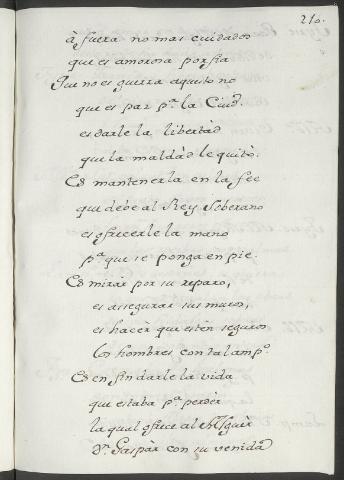 210.
à fuera no mas cuidados
que es amorosa porfia
Que no es guerra aquesto no
que es paz pª. la Ciud.
es darle la libertàd
que la maldàd le quitò.
Es mantenerla en la fee
que debe al Rey Soberano
es ofrecerle la mano
pª que se ponga en pie.
Es mirar por su reparo,
es assegurar sus muros,
es hacèr que estèn seguros
los hombres con tal ampº.
Es en fin darle la vida
que estaba pª. perdèr
la qual ofrece al
dn. Gaspàr con su venida